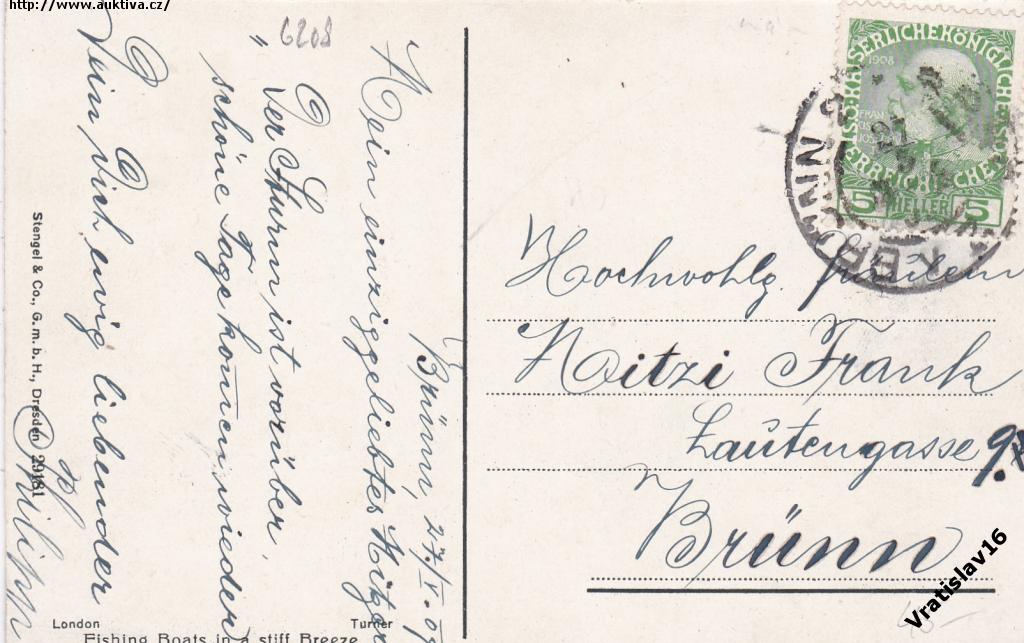 http://www.auktiva.cz/
6208
Brünn, 27./V. 09
Mein einziggeliebtes Mitzerl
„ Der Sturm ist vorüber,
schöne Tage kommen wieder
Dein Dich ewig liebender
Philipp
Stengel & Co., G. m. b. H., Dresden 29181
London
Turner
Fishing Boats in a stiff Breeze
KAISERLICHEKÖNIGLICHE
ÖSTERREICHISCHE
1908
5 HELLER 5
BRÜNN
Hochwohlg. Fräulein
Mitzi Frank
Lautengasse
Brünn
Vratislav16